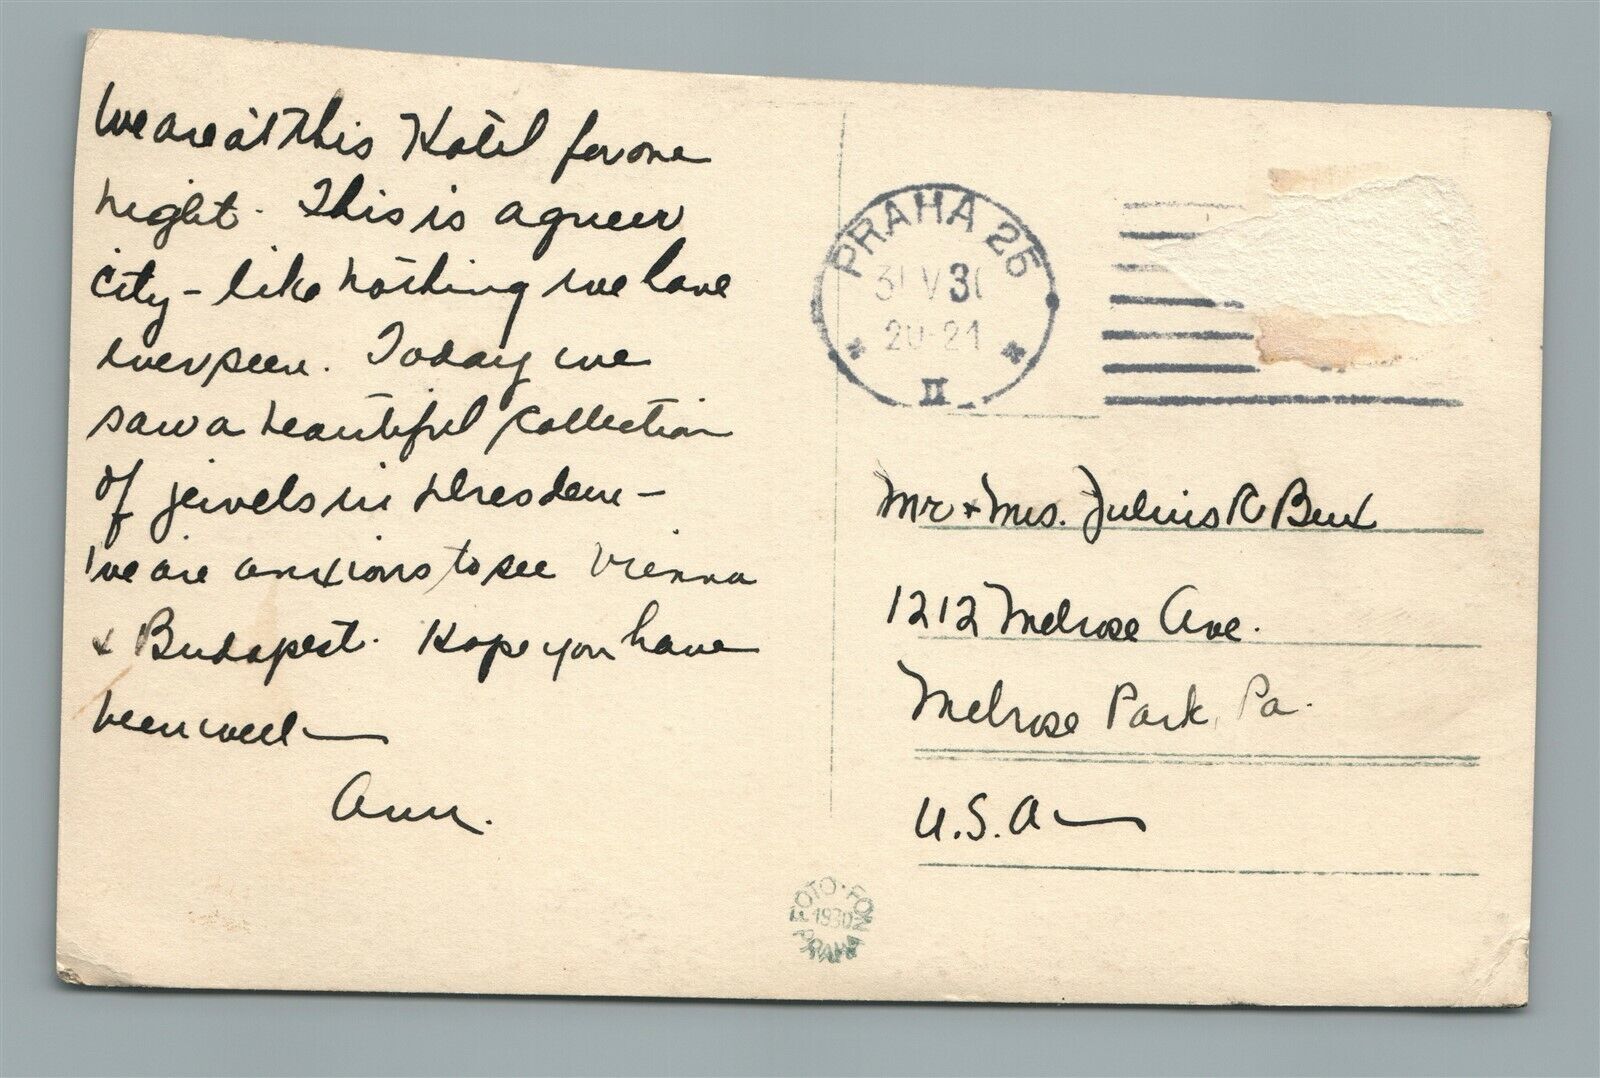 We are at this Hotel for one
night. This is a queer
city - like nothing we have
ever seen. Today we
saw a beautiful collection
of jewels in Dresden -
We are anxious to see Vienna
& Budapest. Hope you have
been well -
Ann.
PRAHA 25
V 3
20-21
II
Mr & Mrs. Julius R
1212 Melrose Ave.
Melrose Park, Pa.
U.S.A -
FOTO-FON
1930
PRAHA